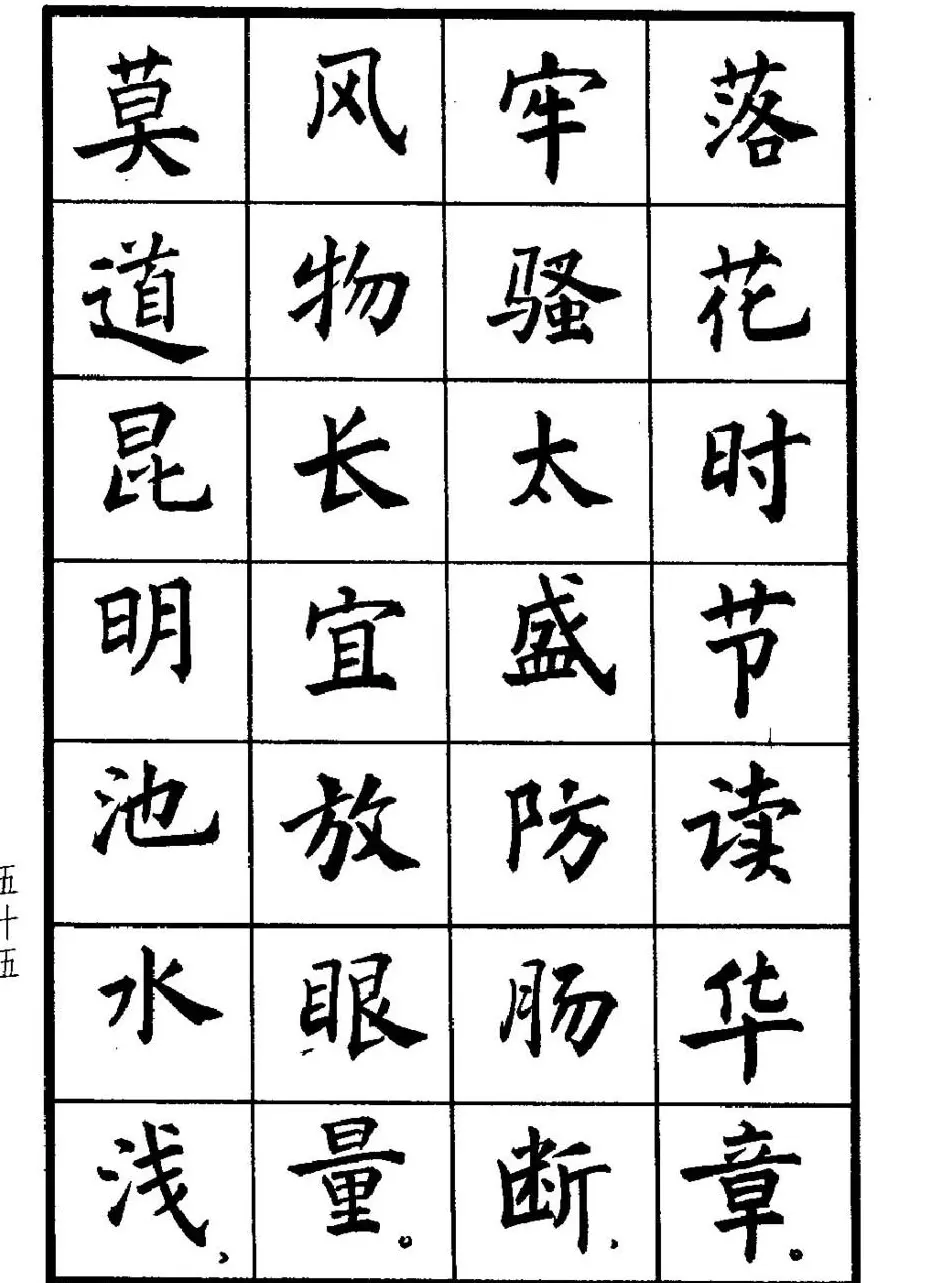 落花时节读华章。
牢骚太盛防肠断，
风物长宜放眼量。
莫道昆明池水浅，
五十五